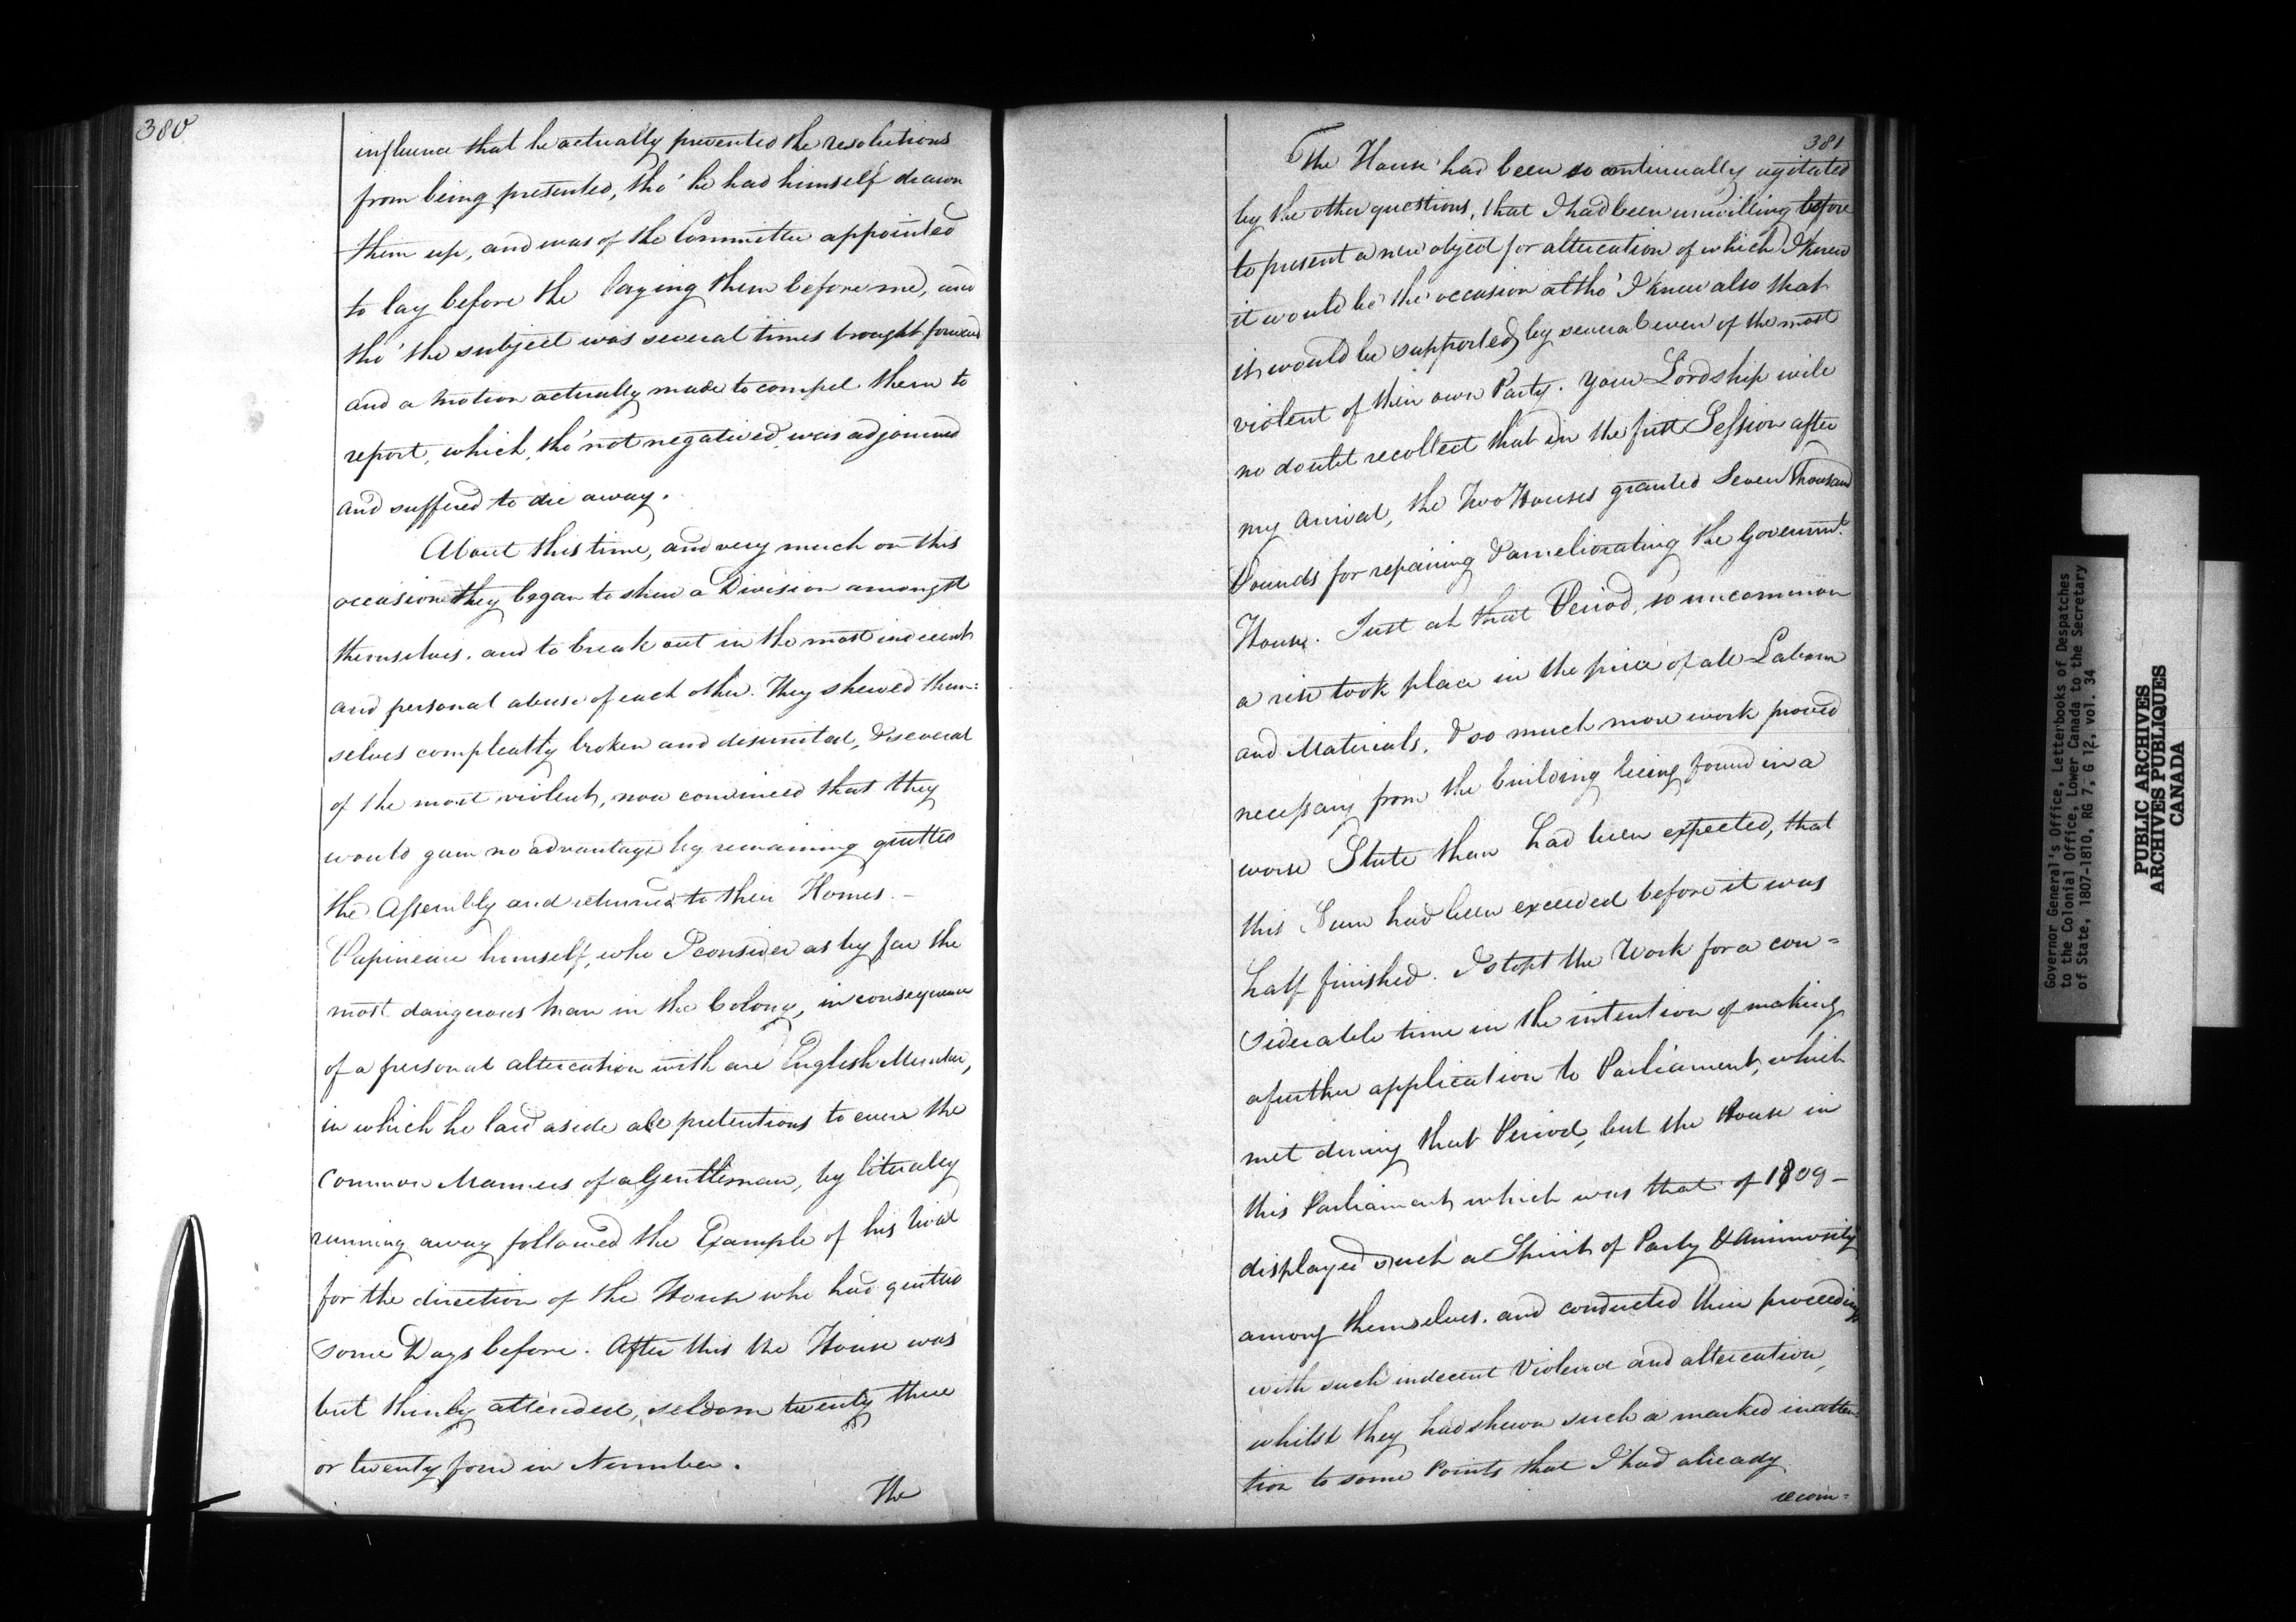 380
influence that he actually prevented the resolutions
from being presented, tho' he had himself drawn
them up, and was of the Committee appointed
to lay before the laying them before me, and
tho' the subject was several times brought forward
and a motion actually made to compel them to
report, which, tho' not negatived, was adjourned
and suffered to die away.
About this time, and very much on this
occasion they began to shew a Division amongst
themselves, and to break out in the most indecent
and personal abuse of each other. They shewed them=
selves compleatly broken and disunited, & several
of the most violent, now convinced that they
would gain no advantage by remaining quitted
the Assembly and returned to their Homes. –
Papineau himself, who I consider as by far the
most dangerous man in the Colony, in consequence
of a personal altercation with an English Member,
in which he laid aside all pretentions to even the
common Manners of a Gentleman, by literally
running away followed the Example of his rival
for the direction of the House who had quitted
some Days before. After this the House was
but thinly attended, seldom twenty three
or twenty four in Number.
The
381
The House had been so continually agitated
by the other questions, that I had been unwilling before
to present a new object for altercation of which I knew
it would be the occasion altho' I knew also that
it would be supported by several even of the most
violent of their own Party. Your Lordship will
no doubt recollect that in the first Session after
my Arrival, the Two Houses granted Seven Thousand
Pounds for repairing & ameliorating the Governmt
House. Just at that Period, so uncommon
a rise took place in the price of all Labour
and Materials, & so much more work proved
necessary from the building being found in a
worse State than had been expected, that
this Sum had been exceeded before it was
half finished. I stopt the Work for a con=
siderable time in the intention of making
a further application to Parliament, which
met during that Period, but the House in
this Parliament, which was that of 1809 –
displayed such a Spirit of Party & Animosity
among themselves, and conducted their proceedings
with such indecent Violence and altercation,
whilst they had shewn such a marked inatten=
tion to some Points that I had already
recom=
Governor General's Office, Letterbooks of Despatches
to the Colonial Office, Lower Canada to the Secretary
of State, 1807-1810, RG 7, G 12, vol. 34
PUBLIC ARCHIVES
ARCHIVES PUBLIQUES
CANADA